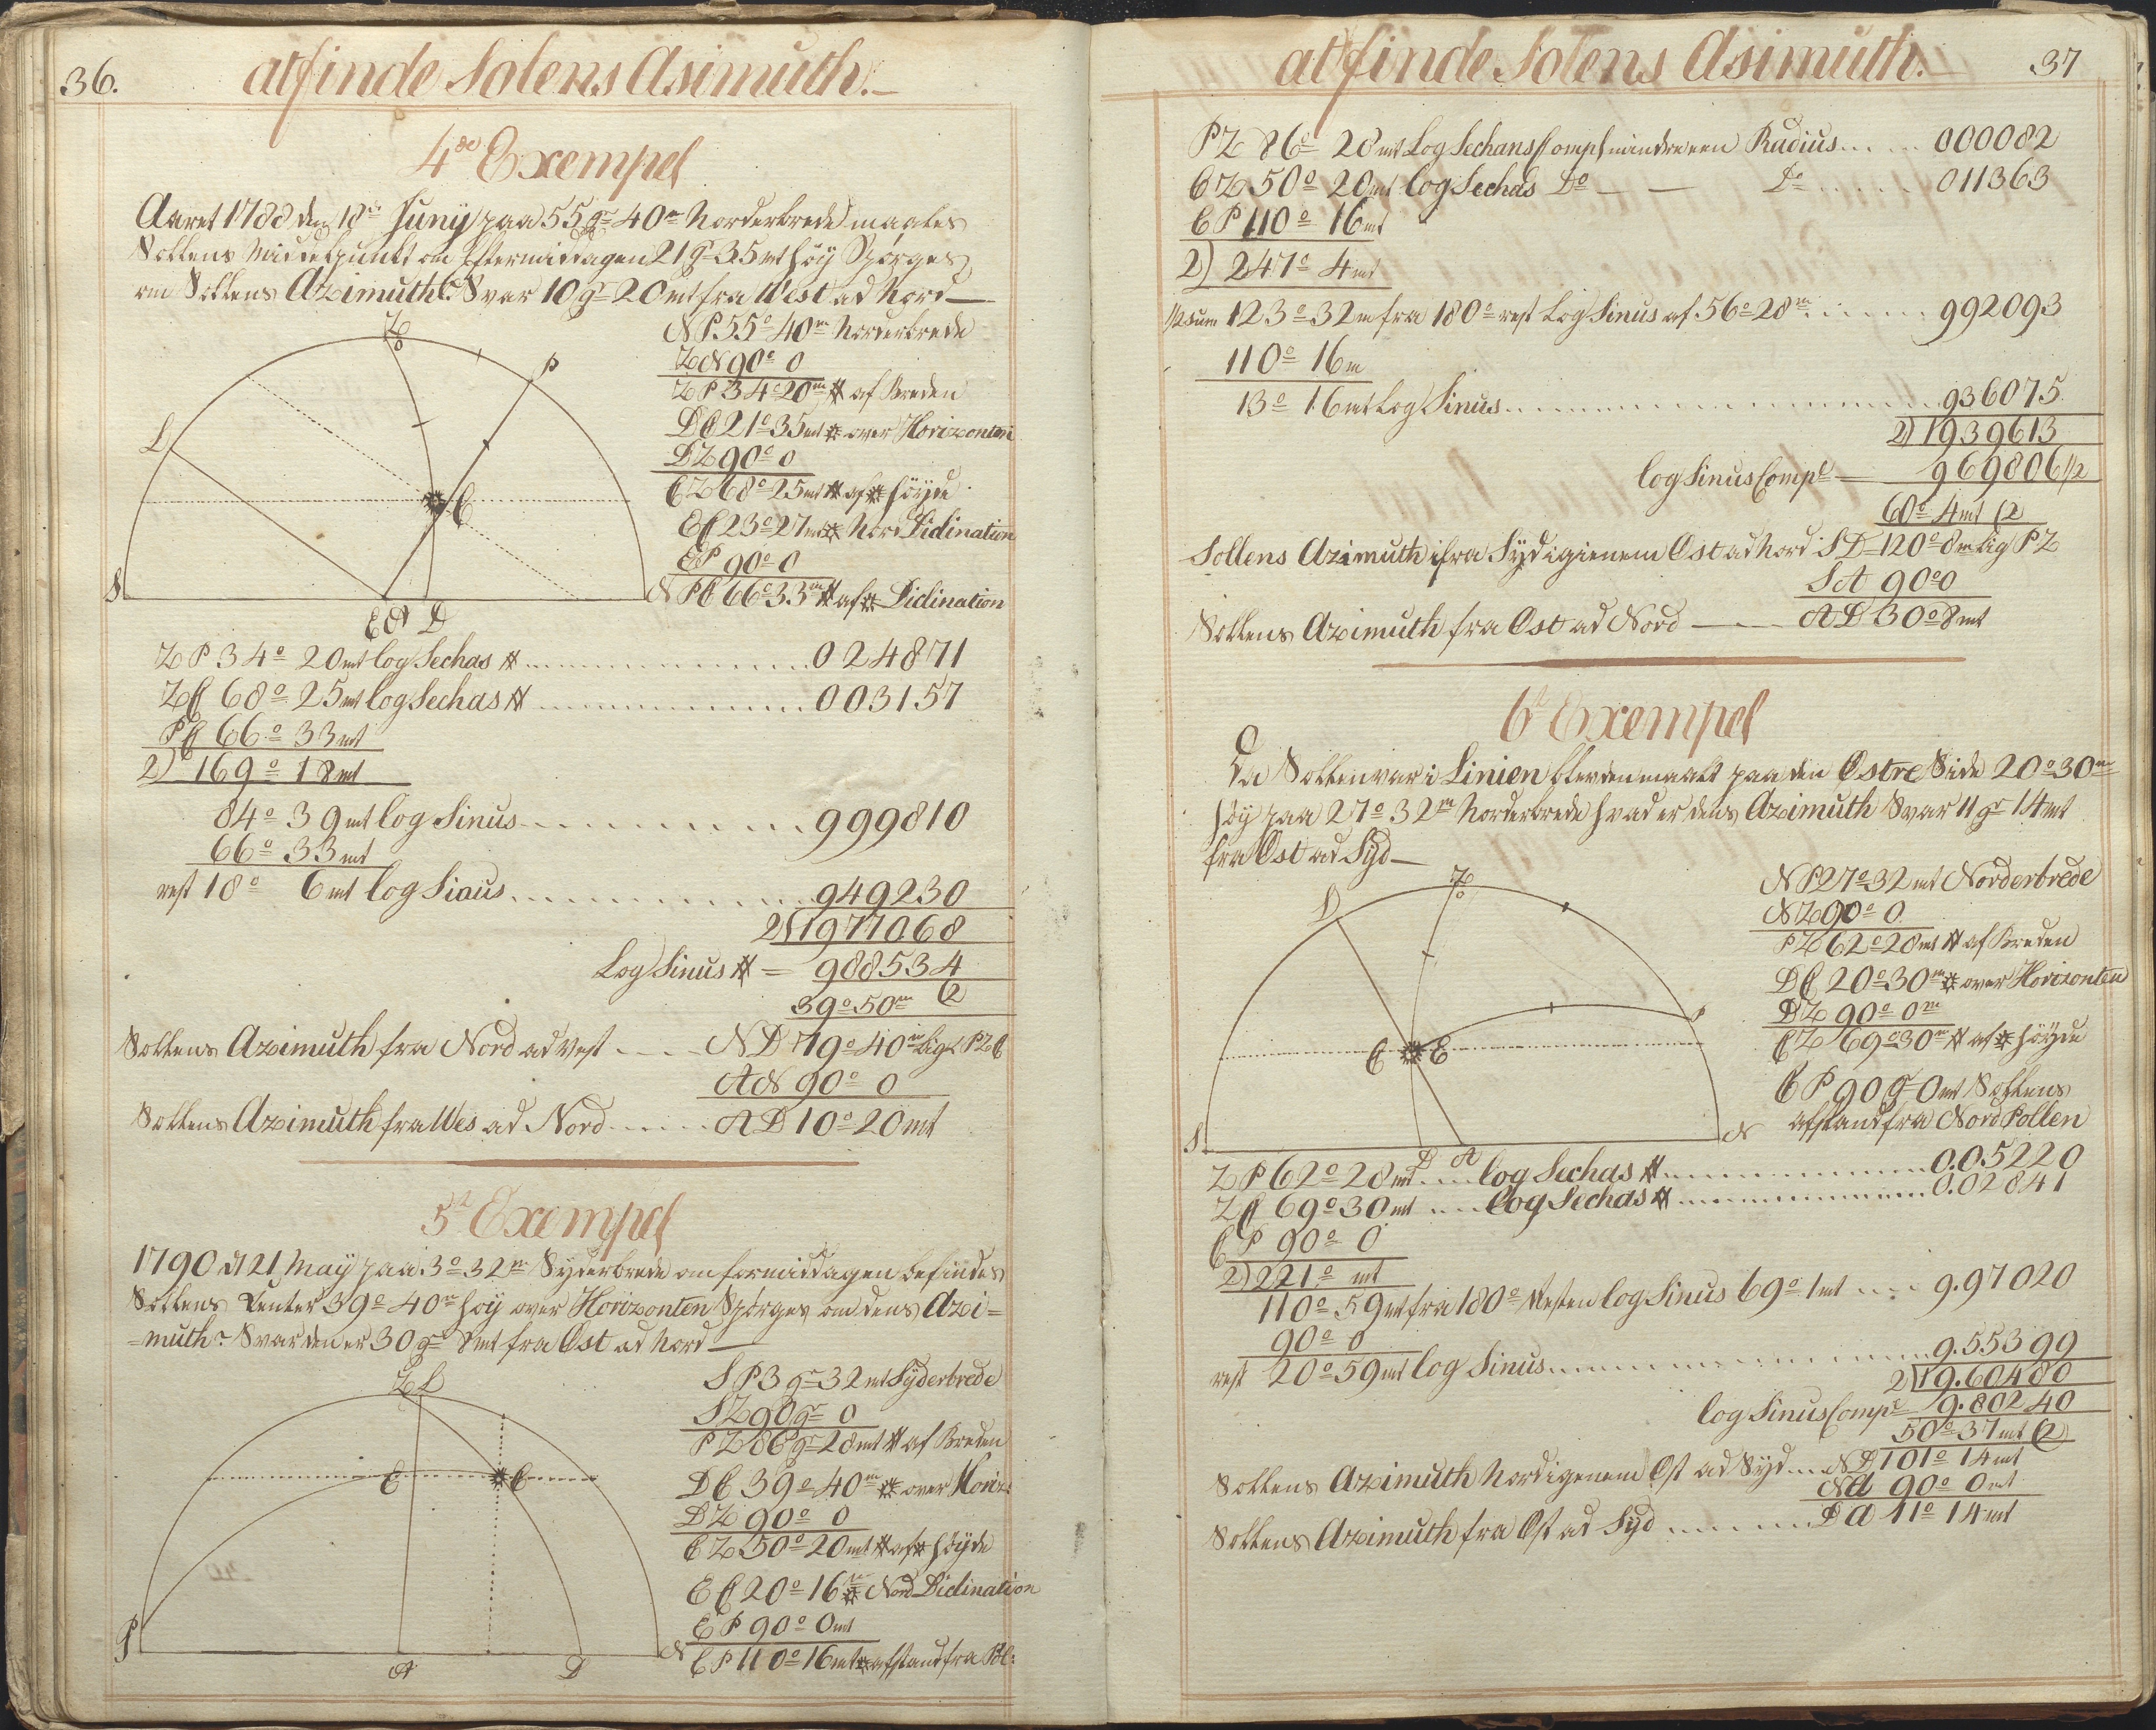 36.
at finde Solens Asimuth.
4de Exempel
Aaret 1788 den 18de Juny paa 55gr 40m Norderbrede maales
Sollens Middelpunkt om Eftermiddagen 21gr 35mt høy Spørges
om Sollens Azimuth? Svar 10gr 20mt fra West ad Nord
Z
P
L
C
S
N
E A D
NP 55° 40m Norderbrede
ZN 90° 0
ZP 34° 20m af Breden
DC 21° 35mt over Horizonten
DZ 90° 0
CZ 68° 25mt af høyde
EC 23° 27mt Nord Diclination
EP 90° 0
PC 66° 33m af Diclination
ZP 34° 20mt log Sechas 024871
ZC 68° 25mt log Sechas 003157
PC 66° 33mt
2) 169° 18mt
84° 39mt log Sinus 999810
66° 33mt
rest 18° 6mt log Sinus 949230
2) 1977068
Log Sinus = 988534
39° 50m (2
Sollens Azimuth fra Nord ad Vest ND 79° 40m Lig PZC
AN 90° 0
Sollens Azimuth fra Wes ad Nord AD 10° 20mt
5te Exempel
1790 d 21 May paa 3° 32m Syderbrede om formiddagen befindes
Sollens Center 39° 40m høy over Horizonten Spørges om dens Azi=
=muth? Svar den er 30gr 8mt fra Ost ad Nord
Z L
E
C
P
A
D
N
SP 3gr 32mt Syderbrede
SZ 90gr 0
PZ 86gr 28mt af Breden
DC 39° 40m over Horiz:
DZ 90° 0
CZ 50° 20mt af høyde
EC 20° 16m Nord Diclination
EP 90° 0mt
CP 110° 16mt afstand fra Pol:
at finde Solens Asimuth.
37
PZ 86° 28mt Log Sechans Compl mindre een Radius 000082
CZ 50° 20mt log Sechas Do Do 011363
CP 110° 16mt
2) 247° 4mt
1/2 sum 123° 32m fra 180° rest Log Sinus af 56° 28m 992093
110° 16m
13° 16mt Log Sinus 936075
2) 1939613
log Sinus Compl 969806 1/2
60° 4mt (2
Sollens Azimuth ifra Syd igienem Ost ad Nord SD 120° 8m Lig PZ
SA 90° 0
Sollens Azimuth fra Ost ad Nord AD 30° 8mt
6te Exempel
Da Sollen var i Linien blev den maalt paa den Østre Side 20° 30m
høy paa 27° 32m Norderbrede hvad er dens Azimuth Svar 11gr 14mt
fra Ost ad Syd
Z
P
C
E
S
D
A
N
NP 27° 32mt Norderbrede
NZ 90° 0
PZ 62° 28mt af Breden
DC 20° 30m over Horizonten
DZ 90° 0m
CZ 69° 30m af høyde
CP 90gr 0mt Sollens
afstand fra Nord Pollen
ZP 62° 28mt log Sechas 0.05220
ZC 69° 30mt log Sechas 0.02841
CP 90° 0
2) 221° mt
110° 59mt fra 180° Resten log Sinus 69° 1mt 9.97020
90° 0
rest 20° 59mt log Sinus 9.55399
2) 19.60480
log Sinus Compl 9.80240
50° 37mt (2)
Sollens Azimuth Nord igenem Ost ad Syd ND 101° 14mt
NA 90° 0mt
Sollens Azimuth fra Ost ad Syd DA 11° 14mt